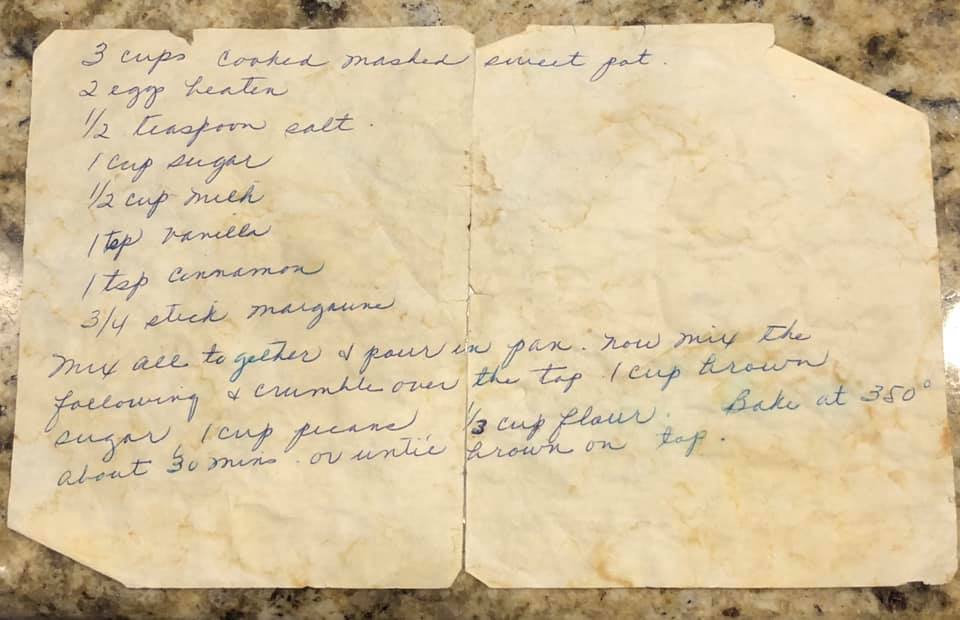 3 cups cooked mashed sweet pot.
2 eggs beaten
1/2 teaspoon salt.
1 cup sugar
1/2 cup milk
1 tsp vanilla
1 tsp cinnamon
3/4 stick margarine
Mix all together & pour in pan. now mix the
following & crumble over the top 1 cup brown
sugar, 1 cup pecans 1/3 cup flour. Bake at 350°
about 30 mins. or until brown on top.